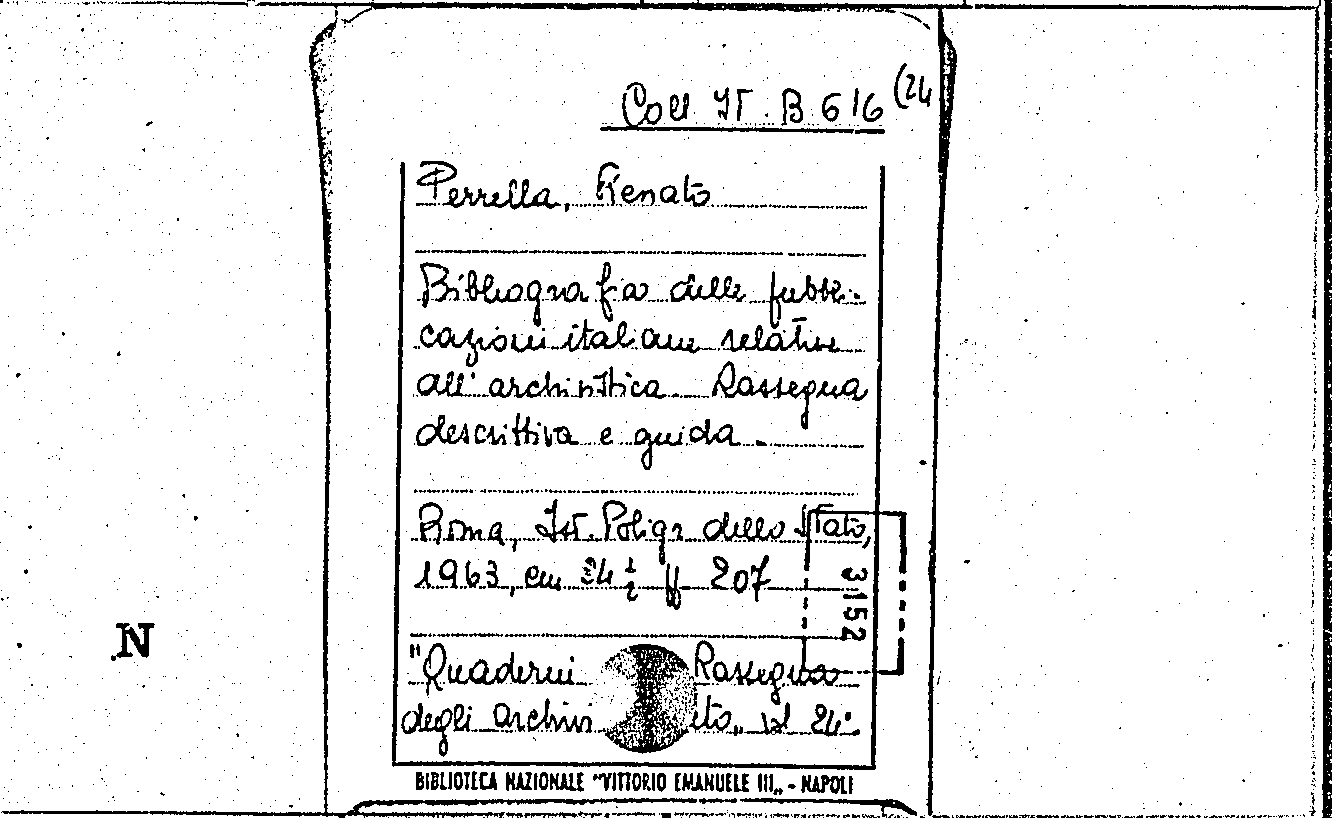 Coll IT. B 616 (24
Perrella, Renato
Bibliografia delle pubbli-
cazioni italiane relative
all'archivistica. Rassegna
descrittiva e guida.
Roma, Ist. Poligr dello Stato,
1963, cm 24 ½ pp 207
3152
N
"Quaderni Rassegna
degli Archivi ato„ vol 24°.
BIBLIOTECA NAZIONALE "VITTORIO EMANUELE III„ - NAPOLI